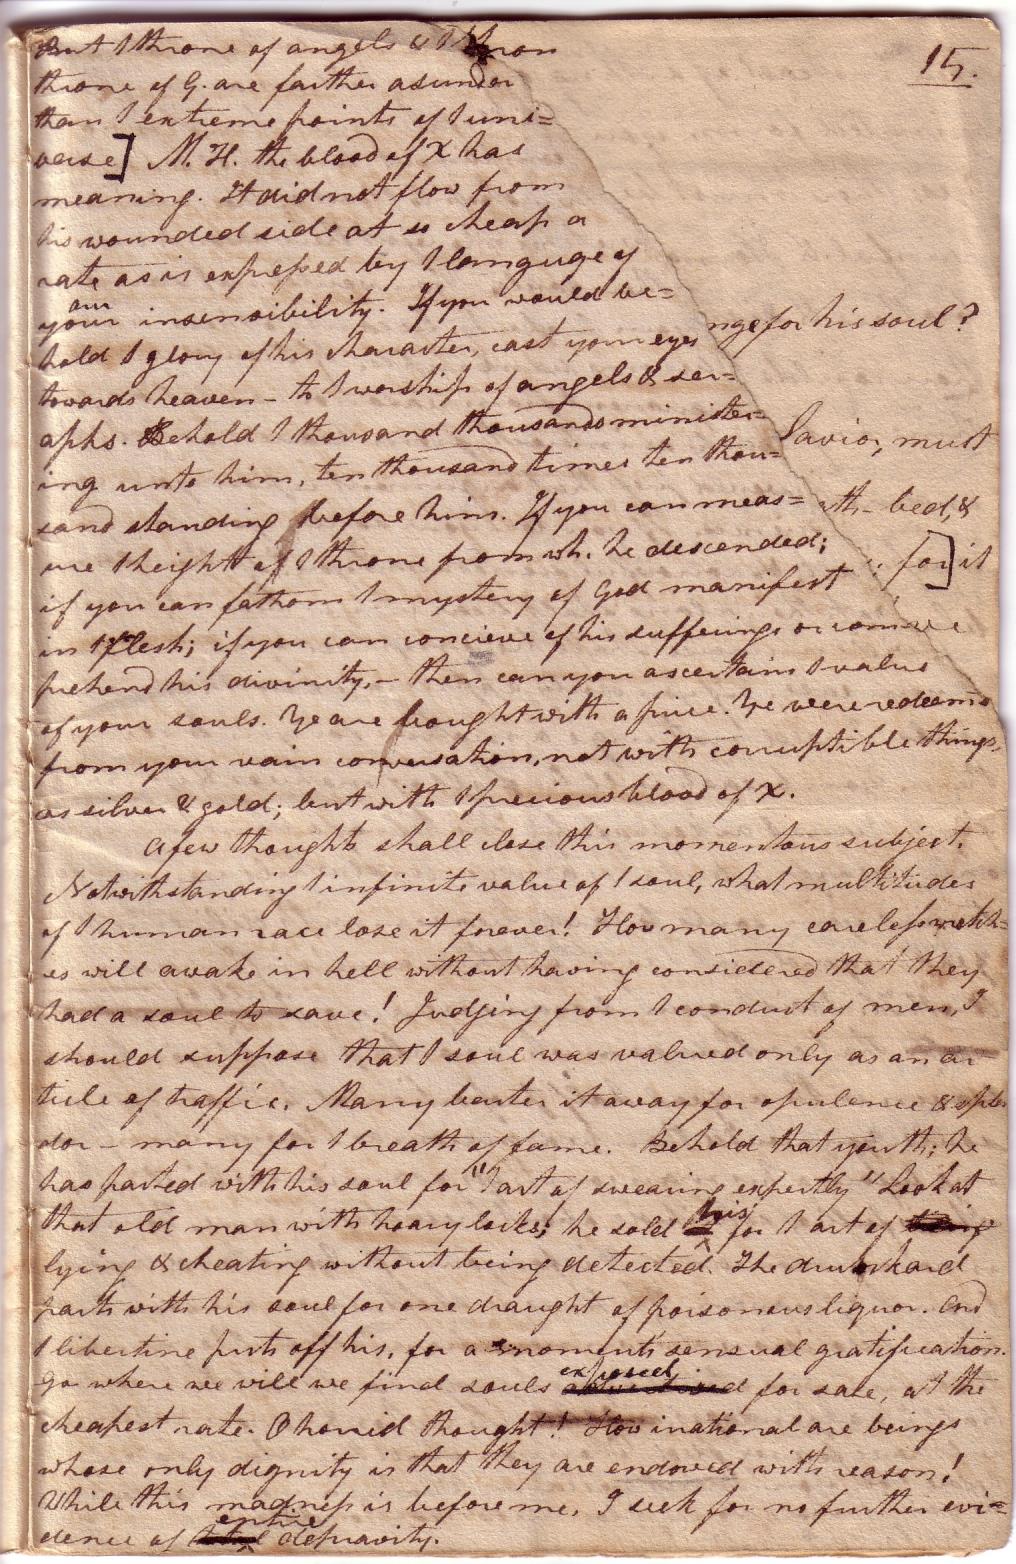 15.
But I throne of angels & I
throne of G. are farther asunder
than I extreme points of I uni=
verse] M. H. the blood of X has
meaning. It did not flow from
his wounded side at so cheap a
rate as is expressed by I languge of
your our insensibility. If you would be=
hold I glory of his character, cast your eyes
towards heaven - to I worship of angels & ser=
aphs. Behold I thousand thousands minister=
ing unto him, ten thousand times ten thou=
sand standing before him. If you can meas=
ure I height of I throne from wh. he descended;
if you can fathom I mystery of God manifest
in I flesh; if you can concieve of his sufferings or
prehend his divinity, - then can you ascertain I value
of your souls. Ye are bought with a price. Ye were redeem
from your vain conversation, not with corruptible things,
as silver & gold; but with I precious blood of X.
nge for his soul?
Savior, must
th-bed, &
for] it
A few thoughts shall close this momentous subject.
Notwithstanding I infinite value of I soul, what multitudes
of I human race lose it forever! How many careless wretch=
es will awake in hell without having considered that they
had a soul to save! Judging from I conduct of men, I
should suppose that I soul was valued only as an ar
ticle of traffic. Many barter it away for opulence & splen
dor - many for I breath of fame. Behold that youth; he
has parted with his soul for "I art of swearing expertly" Look at
that old man with hoary locks; he sold his for I art of
lying & cheating without being detected. The drunkard
parts with his soul for one draught of poisonous liquor. And
I libertine puts off his, for a moment's sensual gratification.
Go where we will we find souls exposed for sale, at the
cheapest rate. O horrid thought! How irrational are beings
whose only dignity is that they are endowed with reason!
While this madness is before me, I seek for no further evi=
dence of entire depravity.